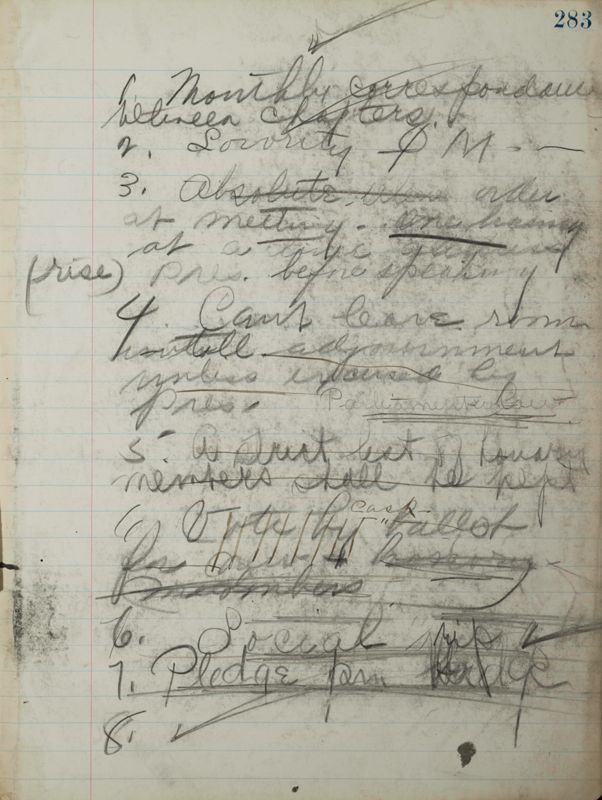 283
1. Monthly correspondence
between chapters.
2. Sorority P M - -
3. Absolute order
at meeting. One being
at a time
(rise) Pres. before speaking
4. Can't leave room
untill adjournment
unless excused by
Pres. Parlimentary Law
5. A Strict list of honary
members shall be kept
6. Vote by cast ballot
for honory
members
6. Social
7. Pledge pin badge
8.